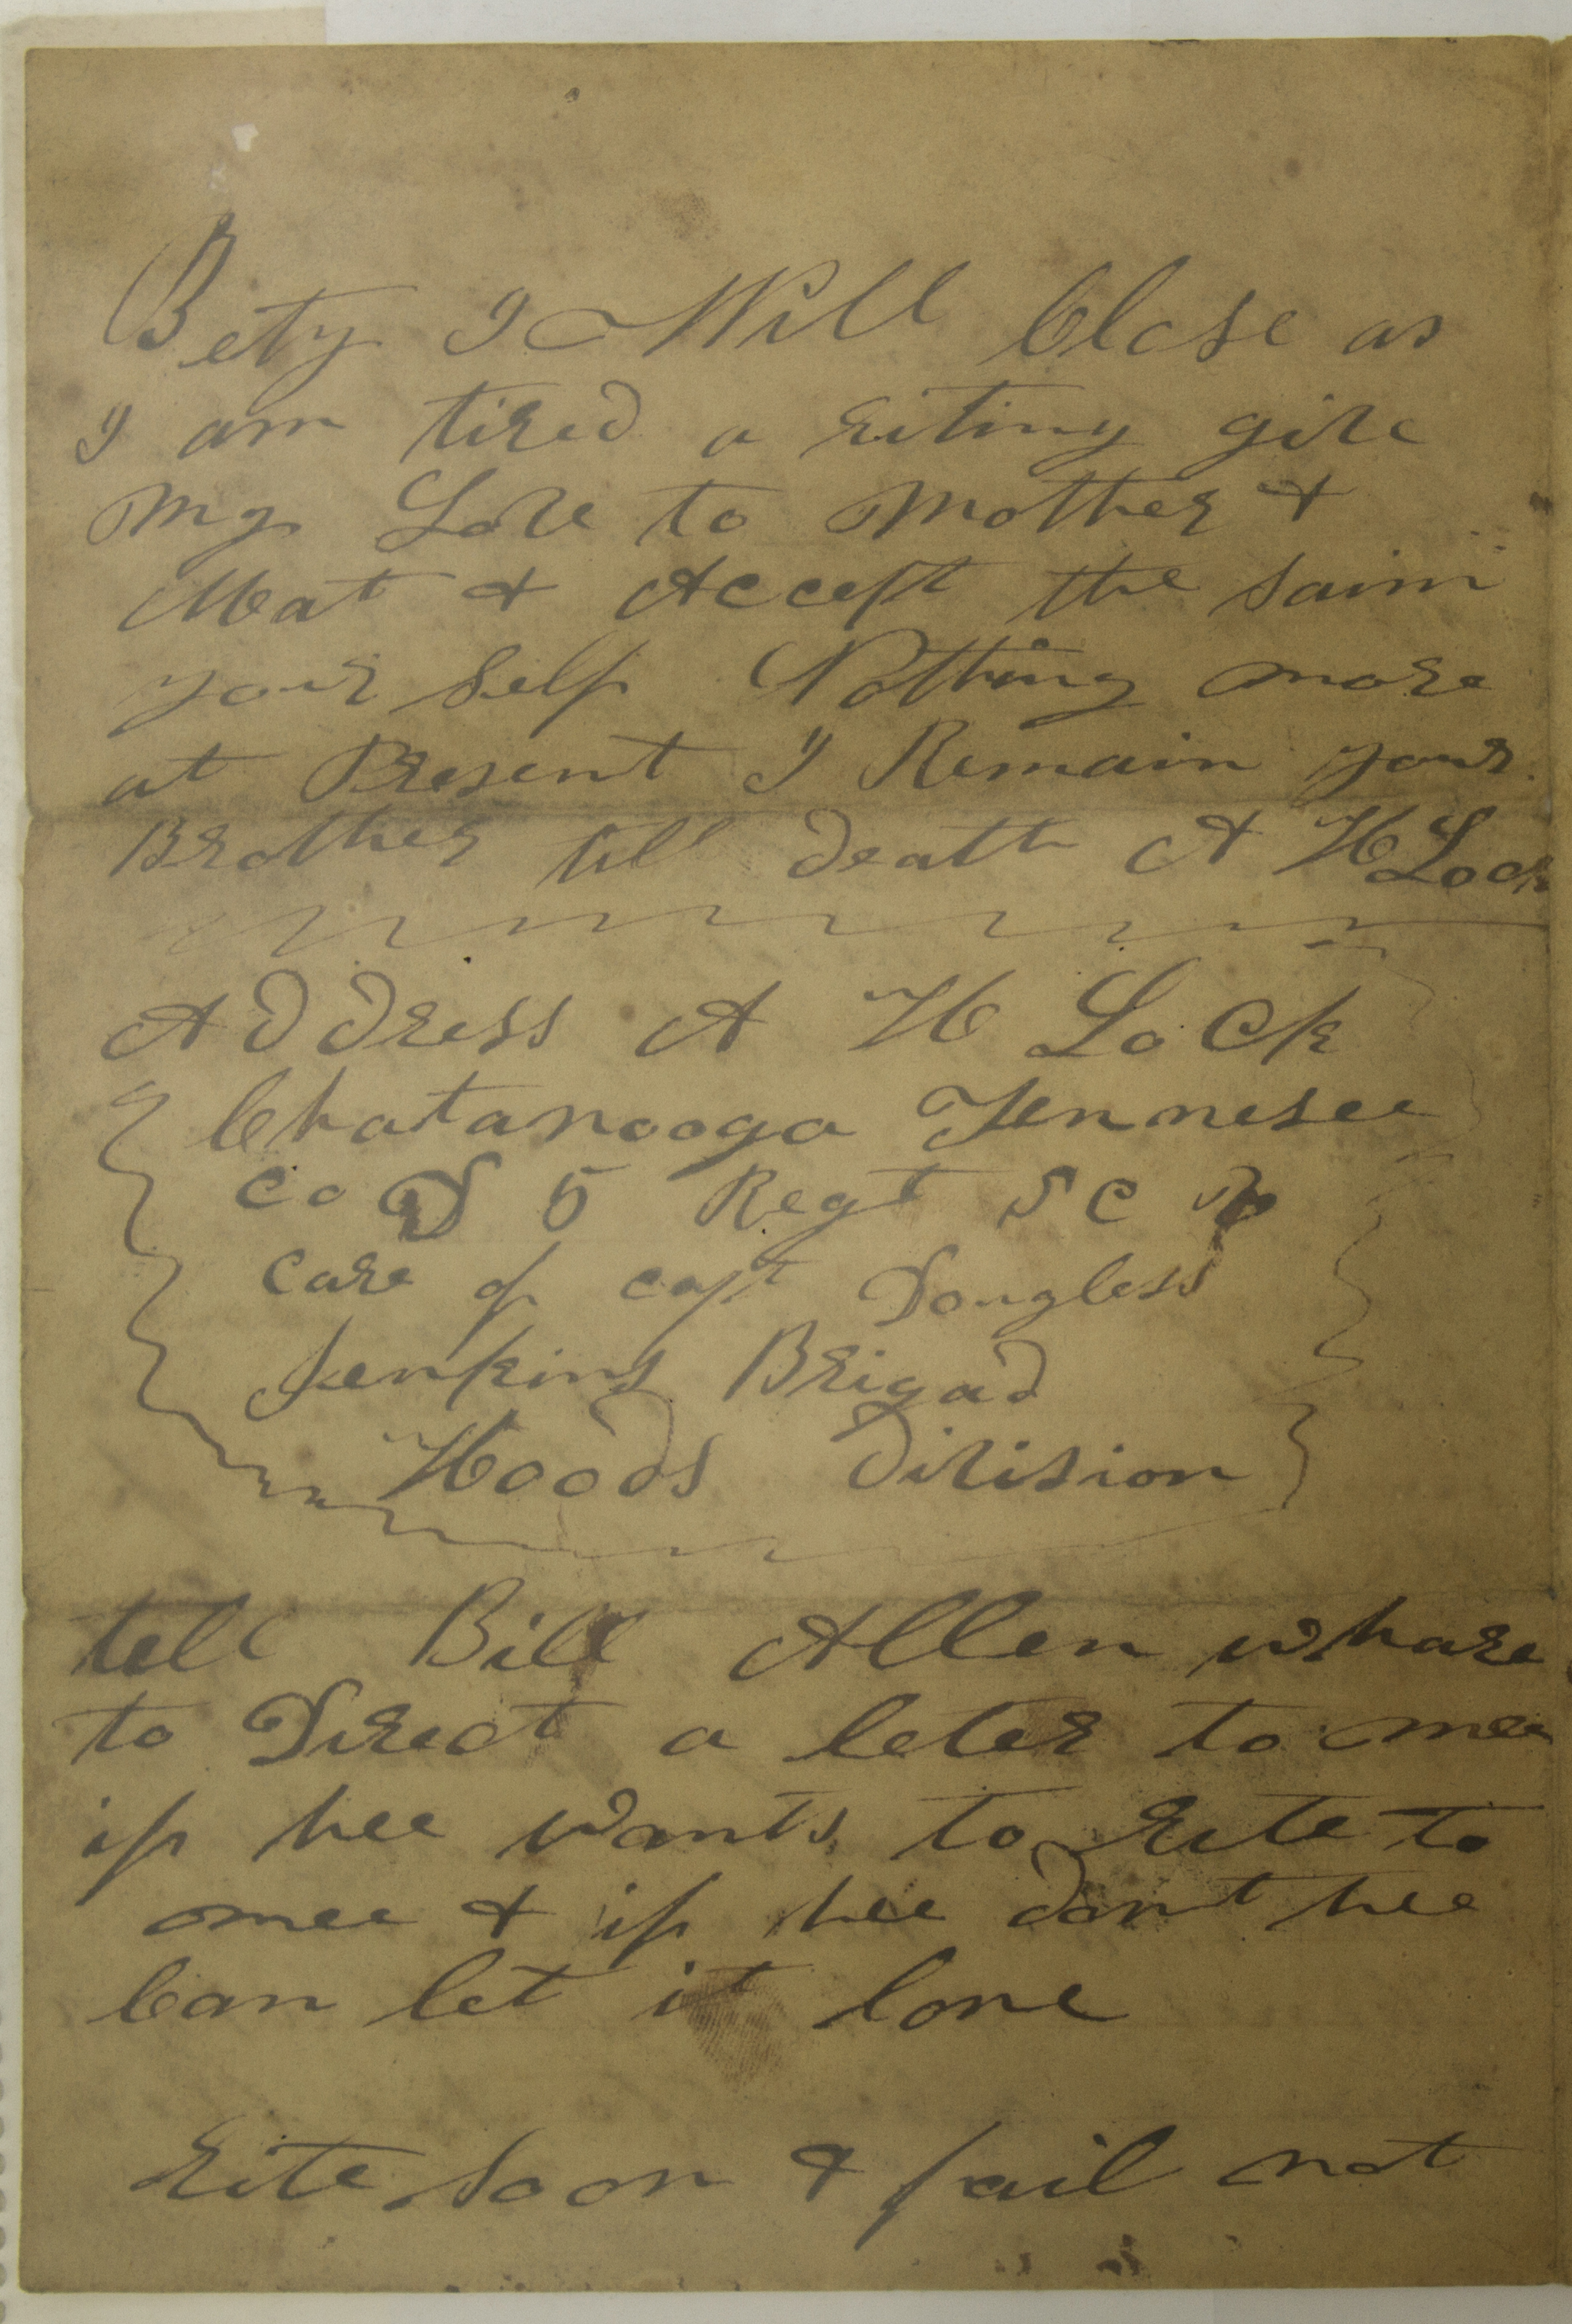 Bety I Will Close as
I am tired a riting give
my Love to Mother &
Mat & Accept the saim
your self Nothing more
at Present I Remain your
Brother till death A H Lock
Address A H Lock
Chatanooga Tennesee
Co D 5 Regt S C
care of capt Dougless
Jenkins Brigad
Hoods Division
tell Bill Allen whare
to Direct a leter to mee
if hee wants to rite to
mee & if hee dont hee
Can let it lone
rite soon & fail not